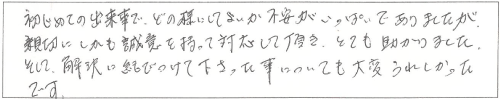 初じめての出来事で、どの様にしてよいか不安がいっぱいでありましたが、
親切にしかも誠意を持って対応して頂き、とても助かりました。
そして、解決に結びつけて下さった事についても大変うれしかった
です。